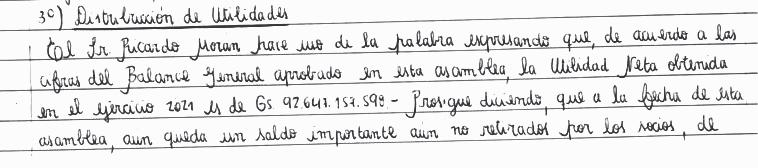 3º) Distribución de Utilidades
El Sr. Ricardo Moran hace uso de la palabra expresando que, de acuerdo a las
cifras del Balance General aprobado en esta asamblea, la Utilidad Neta obtenida
en el ejercicio 2021 es de Gs 92.647.157.599.- Prosigue diciendo, que a la fecha de esta
asamblea, aun queda un saldo importante aun no retirados por los socios, de